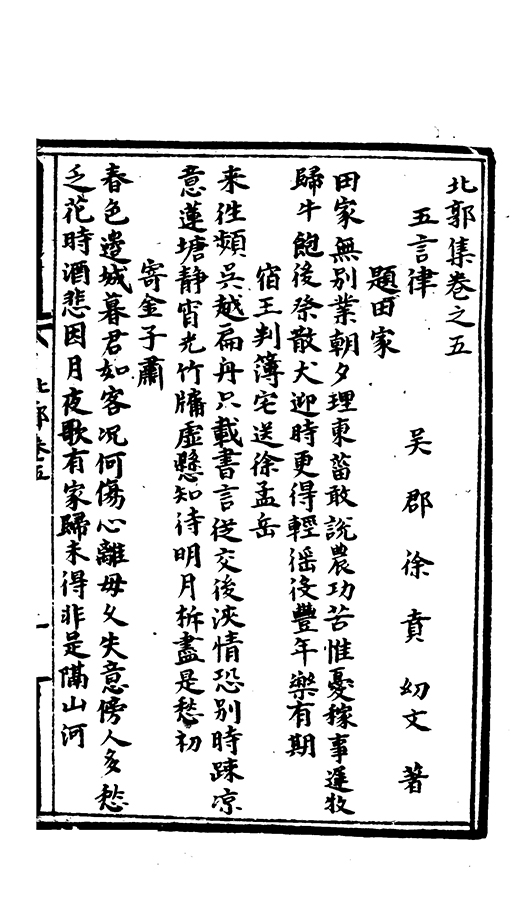 北郭集卷之五
五言律 吴郡徐賁幼文著
題田家
田家無別業朝夕理東菑敢說農功苦惟憂稼事遲牧
歸牛飽後祭散犬迎時更得輕徭役豐年樂有期
宿王判簿宅送徐孟岳
来往頻吳越扁舟只載書言從交後淡情恐別時踈凉
意蓮塘靜宵光竹牖虛懸知待明月柝盡是愁初
寄金子肅
春色邊城暮君如客况何傷心離母久失意傍人多愁
乏花時酒悲因月夜歌有家歸未得非是隔山河
北郭卷五
一